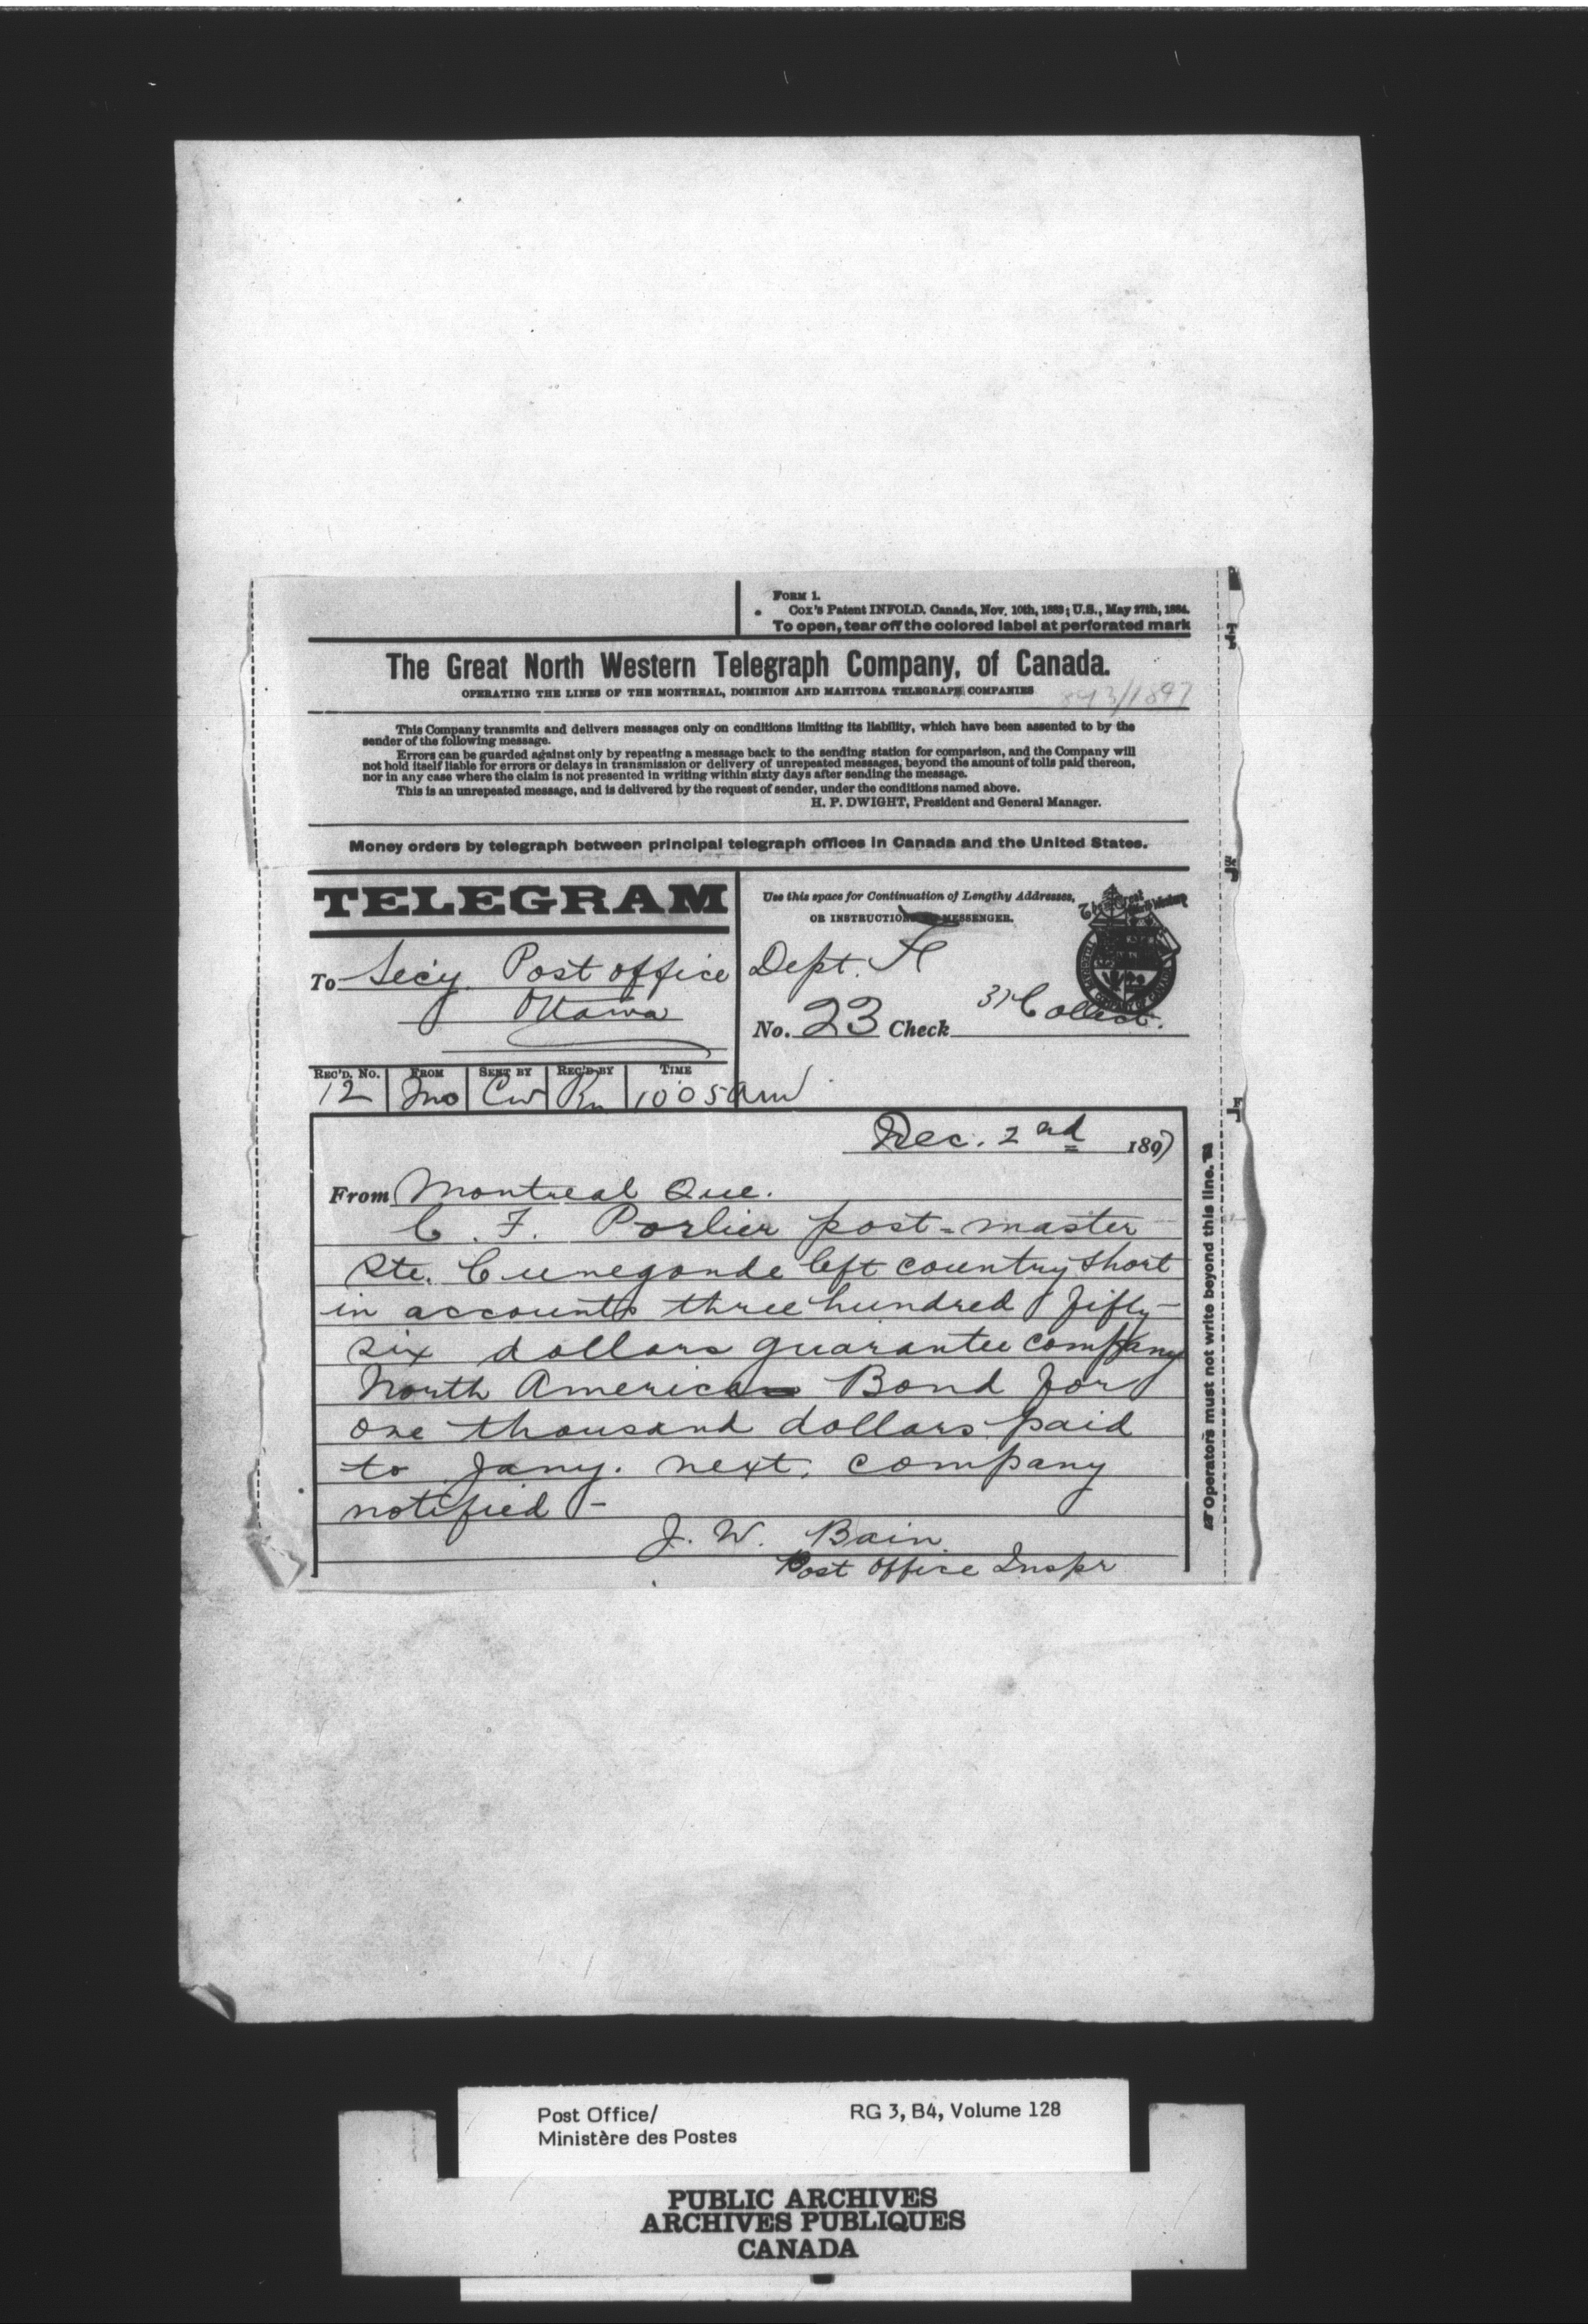 FORM 1.
Cox's Patent INFOLD. Canada, Nov. 10th, 1883; U.S., May 27th, 1884.
To open, tear off the colored label at perforated mark
The Great North Western Telegraph Company, of Canada.
OPERATING THE LINES OF THE MONTREAL, DOMINION AND MANITOBA TELEGRAPH COMPANIES
843/1897
This Company transmits and delivers messages only on conditions limiting its liability, which have been assented to by the
sender of the following message.
Errors can be guarded against only by repeating a message back to the sending station for comparison, and the Company will
not hold itself liable for errors or delays in transmission or delivery of unrepeated messages, beyond the amount of tolls paid thereon,
nor in any case where the claim is not presented in writing within sixty days after sending the message.
This is an unrepeated message, and is delivered by the request of sender, under the conditions named above.
H. P. DWIGHT, President and General Manager.
Money orders by telegraph between principal telegraph offices in Canada and the United States.
TELEGRAM
Use this space for Continuation of Lengthy Addresses,
OR INSTRUCTIONS TO MESSENGER.
To Secy. Post office
Ottawa
Dept.
No. 23 Check 31 Collect.
REC'D. No. FROM SENT BY REC'D BY TIME
12 Mo Cw Rn 10 05 am
Dec. 2nd 1897
From Montreal Que.
C. F. Porlier post-master
Ste. Cunegonde left country short
in accounts three hundred fifty-
six dollars guarantee company
North America Bond for
one thousand dollars paid
to Jany. next. company
notified -
J. W. Bain
Post Office Inspr
Operators must not write beyond this line.
Post Office/ RG 3, B4, Volume 128
Ministère des Postes
PUBLIC ARCHIVES
ARCHIVES PUBLIQUES
CANADA